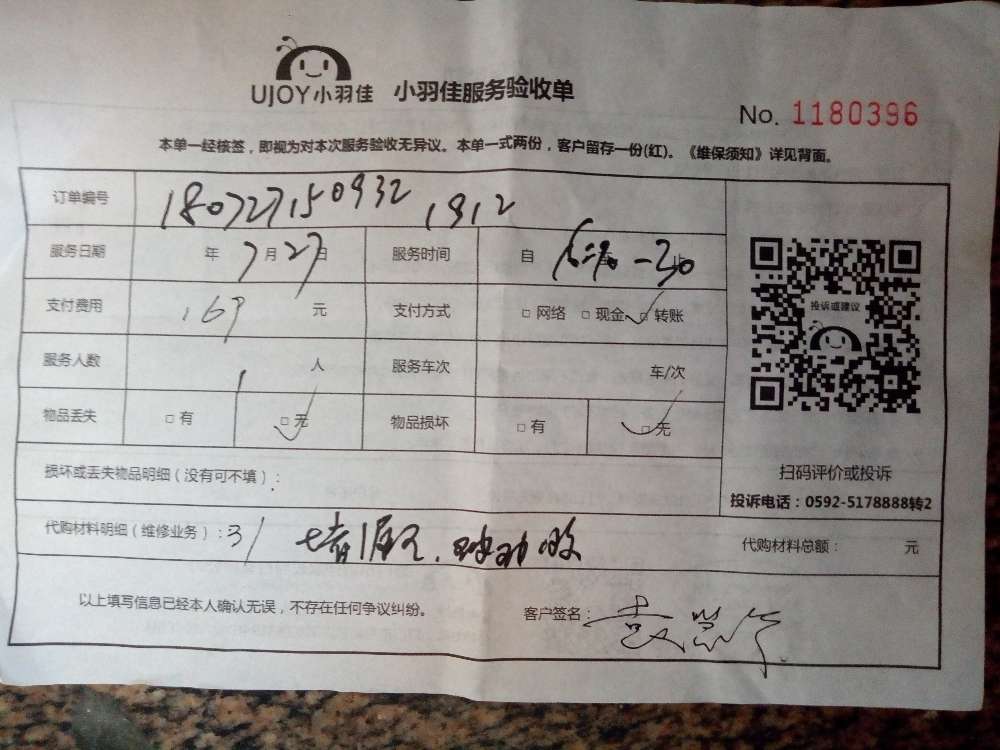 UJOY小羽佳 小羽佳服务验收单
No. 1180396
本单一经核签，即视为对本次服务验收无异议。本单一式两份，客户留存一份(红)。《维保须知》详见背面。
订单编号 180727150932 1912
服务日期 年 7月27日 服务时间 自
支付费用 169 元 支付方式 □网络 □现金 □转账
服务人数 1 人 服务车次 车/次
物品丢失 □有 □无 物品损坏 □有 □无
损坏或丢失物品明细（没有可不填）：
代购材料明细（维修业务）：31 代购材料总额： 元
以上填写信息已经本人确认无误，不存在任何争议纠纷。 客户签名：
投诉或建议
扫码评价或投诉
投诉电话：0592-5178888转2